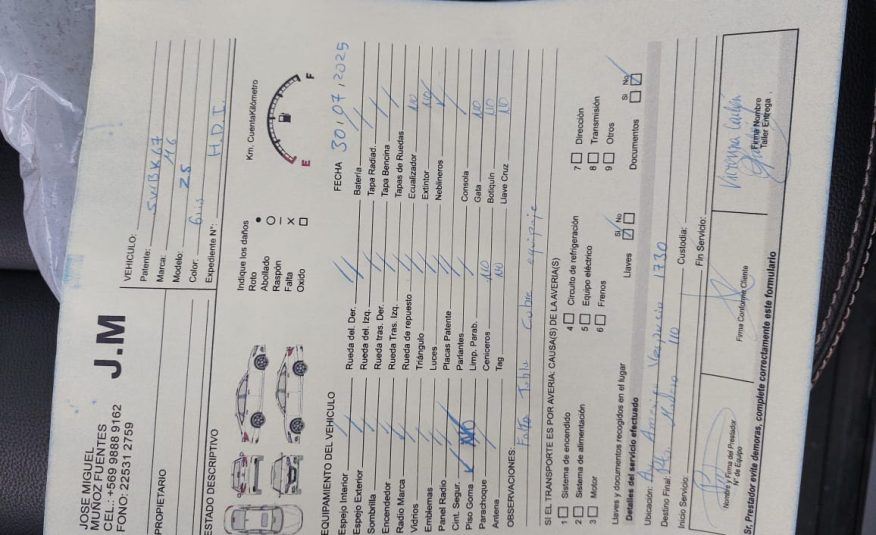 JOSE MIGUEL
MUÑOZ FUENTES
CEL.: +569 9888 9162
FONO: 225312759
J.M
VEHICULO:
Patente:
Marca: MG
Modelo: ZS
Color: Gris
Expediente N°: H.D.I.
PROPIETARIO
ESTADO DESCRIPTIVO
Indique los daños
Roto ●
Abollado ○
Raspón –
Falta X
Oxido □
Km. CuentaKilómetro
E F
EQUIPAMIENTO DEL VEHICULO
FECHA 30, 07, 2025
Espejo Interior
Espejo Exterior
Sombrilla
Encendedor
Radio Marca
Vidrios
Emblemas
Panel Radio
Cint. Segur.
Piso Goma NO
Parachoque
Antena
Rueda del. Der.
Rueda del. Izq.
Rueda tras. Der.
Rueda Tras. Izq.
Rueda de repuesto
Triángulo
Luces
Placas Patente
Parlantes
Limp. Parab.
Ceniceros NO
Tag NO
Batería
Tapa Radiad.
Tapa Bencina
Tapas de Ruedas
Ecualizador NO
Extintor NO
Neblineros
Consola
Gata NO
Botiquín NO
Llave Cruz NO
OBSERVACIONES: Falta Tabla Cubre equipaje
SI EL TRANSPORTE ES POR AVERIA: CAUSA(S) DE LA AVERIA(S)
1 Sistema de encendido
2 Sistema de alimentación
3 Motor
4 Circuito de refrigeración
5 Equipo eléctrico
6 Frenos
7 Dirección
8 Transmisión
9 Otros
Llaves y documentos recogidos en el lugar
Llaves Si No
Documentos Si No
Detalles del servicio efectuado
Ubicación: Av Americo Vespucio 1730
Destino Final: 110
Custodia:
Inicio Servicio:
Fin Servicio:
Nombre y Firma del Prestador
N° de Equipo
Firma Conforme Cliente
Firma Nombre
Taller Entrega
Sr. Prestador evite demoras, complete correctamente este formulario